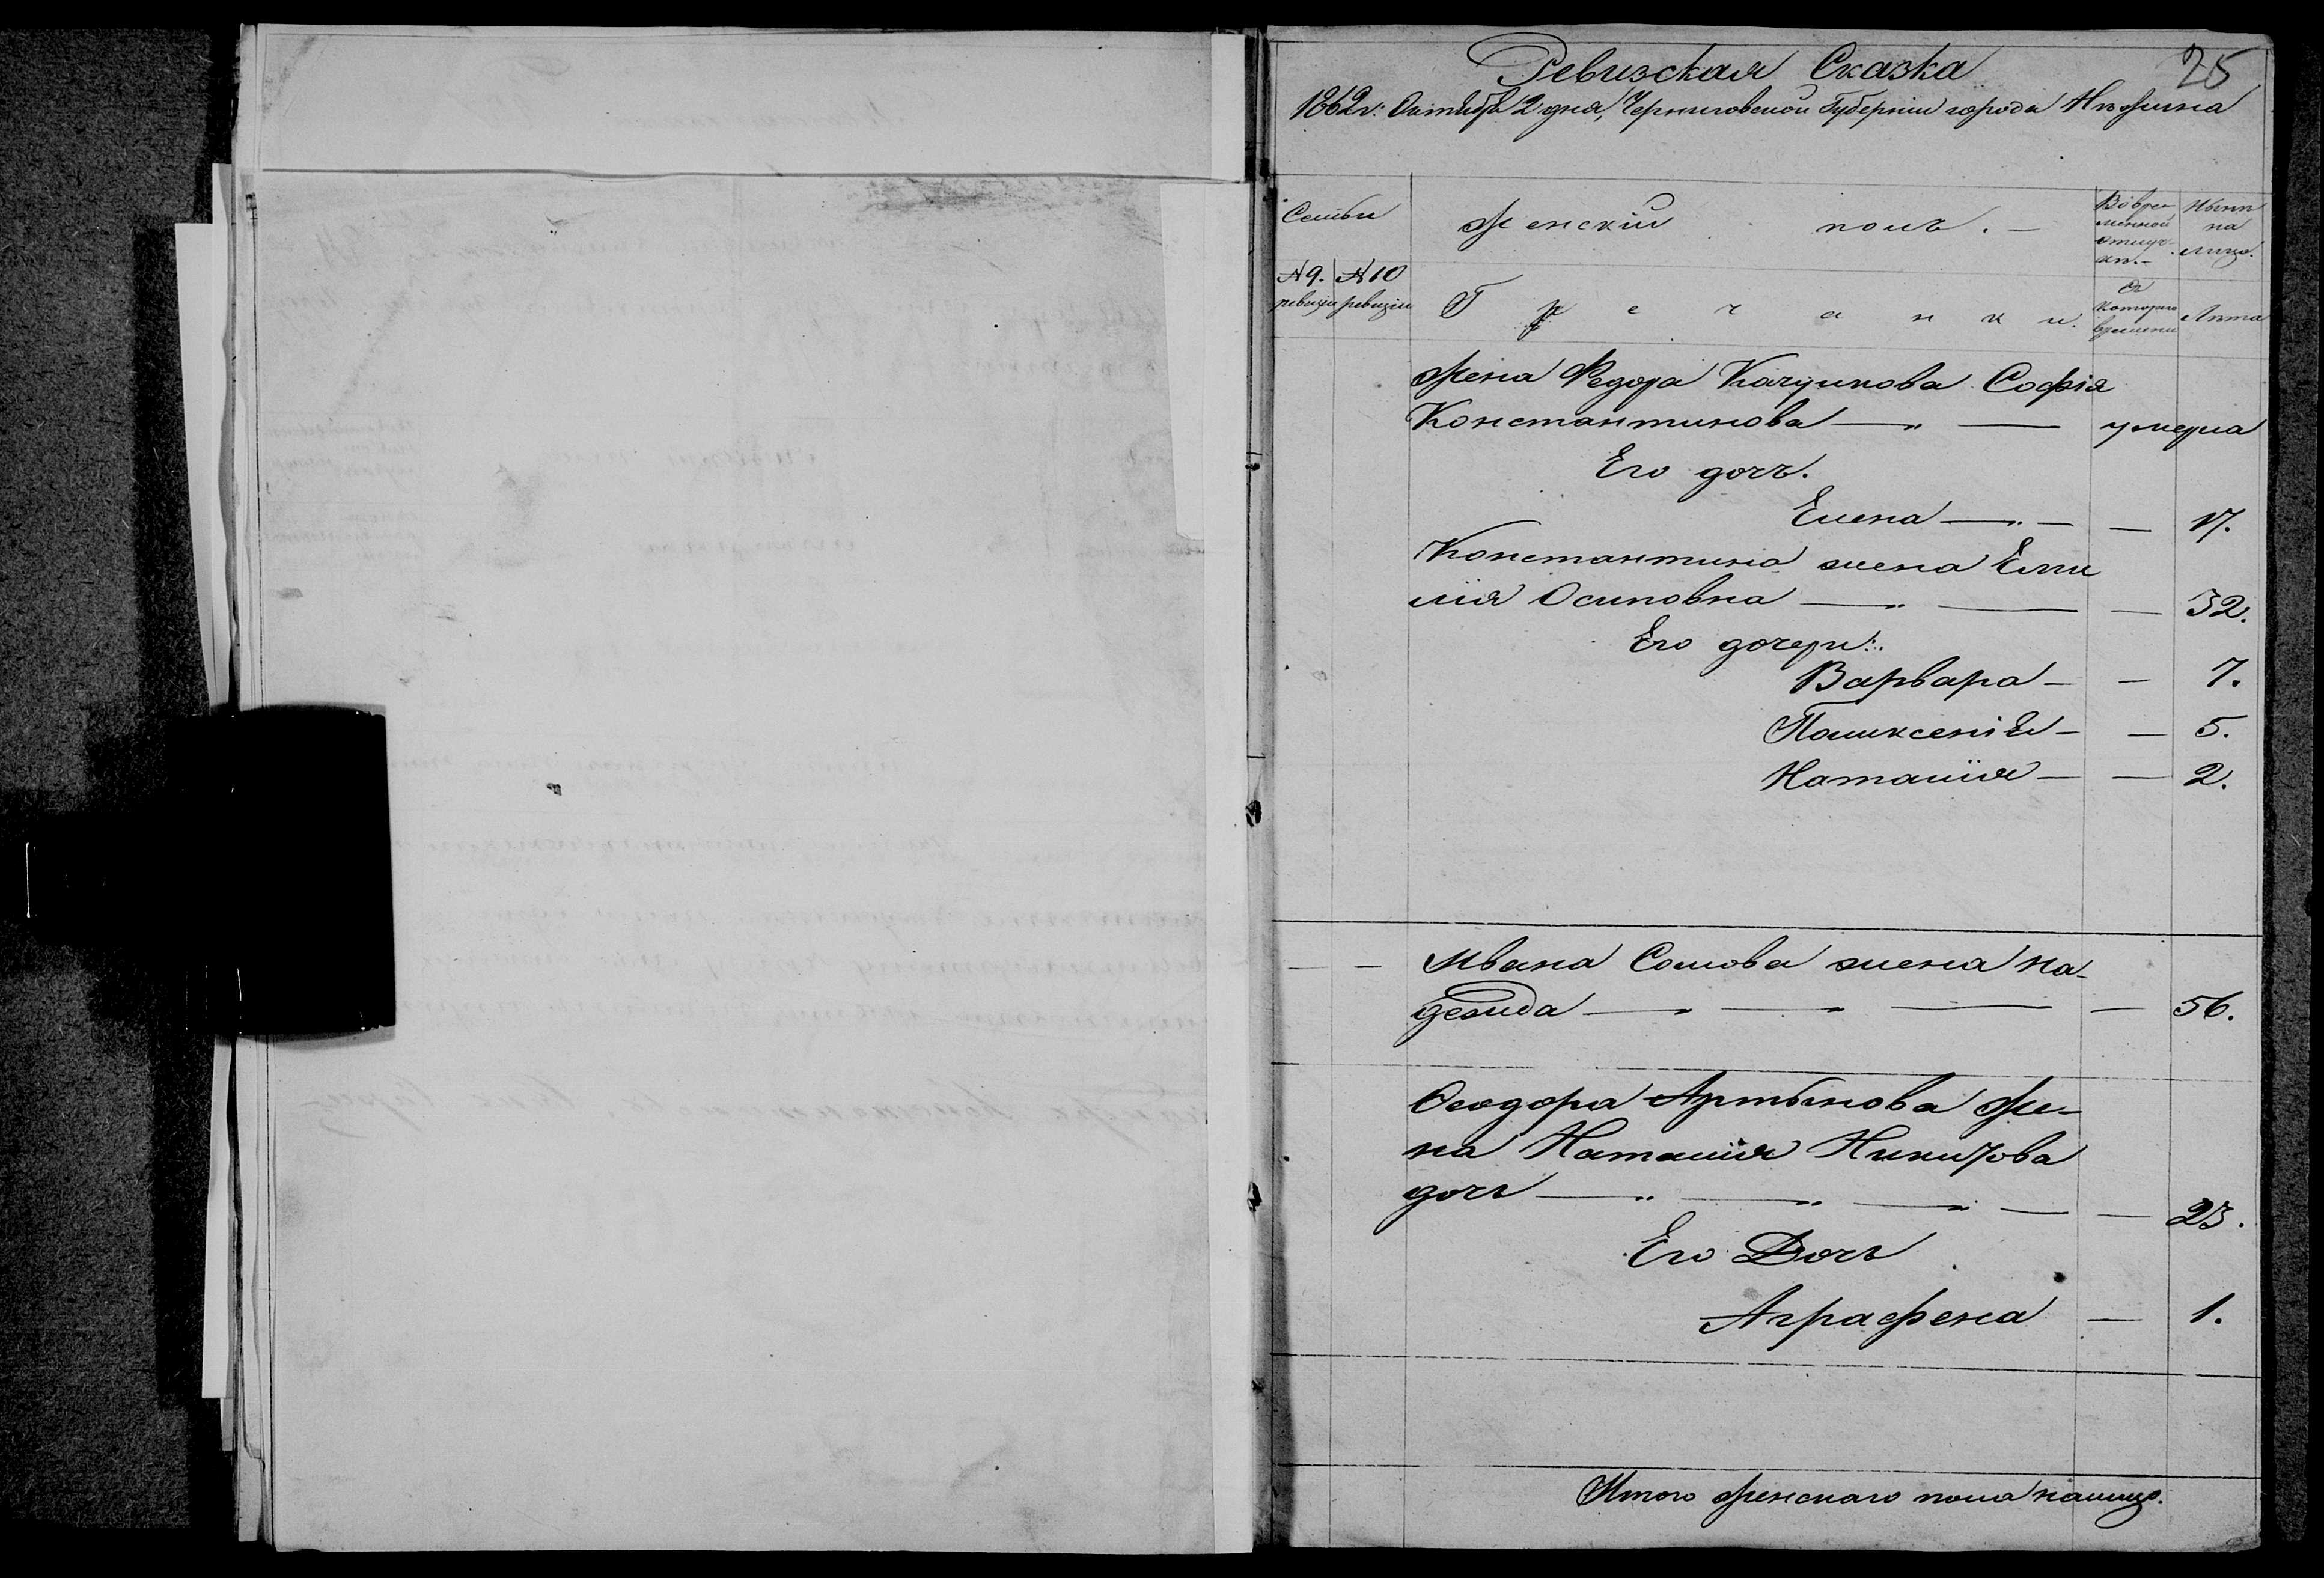 Ревизская Сказка
25
1862 г: Октября 2 дня, Черниговской Губерніи города Нѣжина
Семьи
Женскій полъ. —
Во временной отлучкѣ. —
Нынѣ на лицо.
№ 9. ревизіи
№ 10 ревизіи
Гречанки.
Съ котораго времени
Лѣта
Жена Федора Софія
Константинова — „ — умерла
Его дочь.
Елена — „ — — 17.
Константина жена Еми
лія Осиповна — „ — — 32.
Его дочери:
Варвара — — 7.
Поликсенія — — 5.
Наталія — — 2.
— — Ивана Сомова жена На-
дежда — „ — „ — — 56.
Ѳеодора Артынова Же-
на Наталія Никитова
дочь — „ — „ — „ — — 23.
Его Дочь
Аграфена — 1.
Итого женскаго пола налицо.